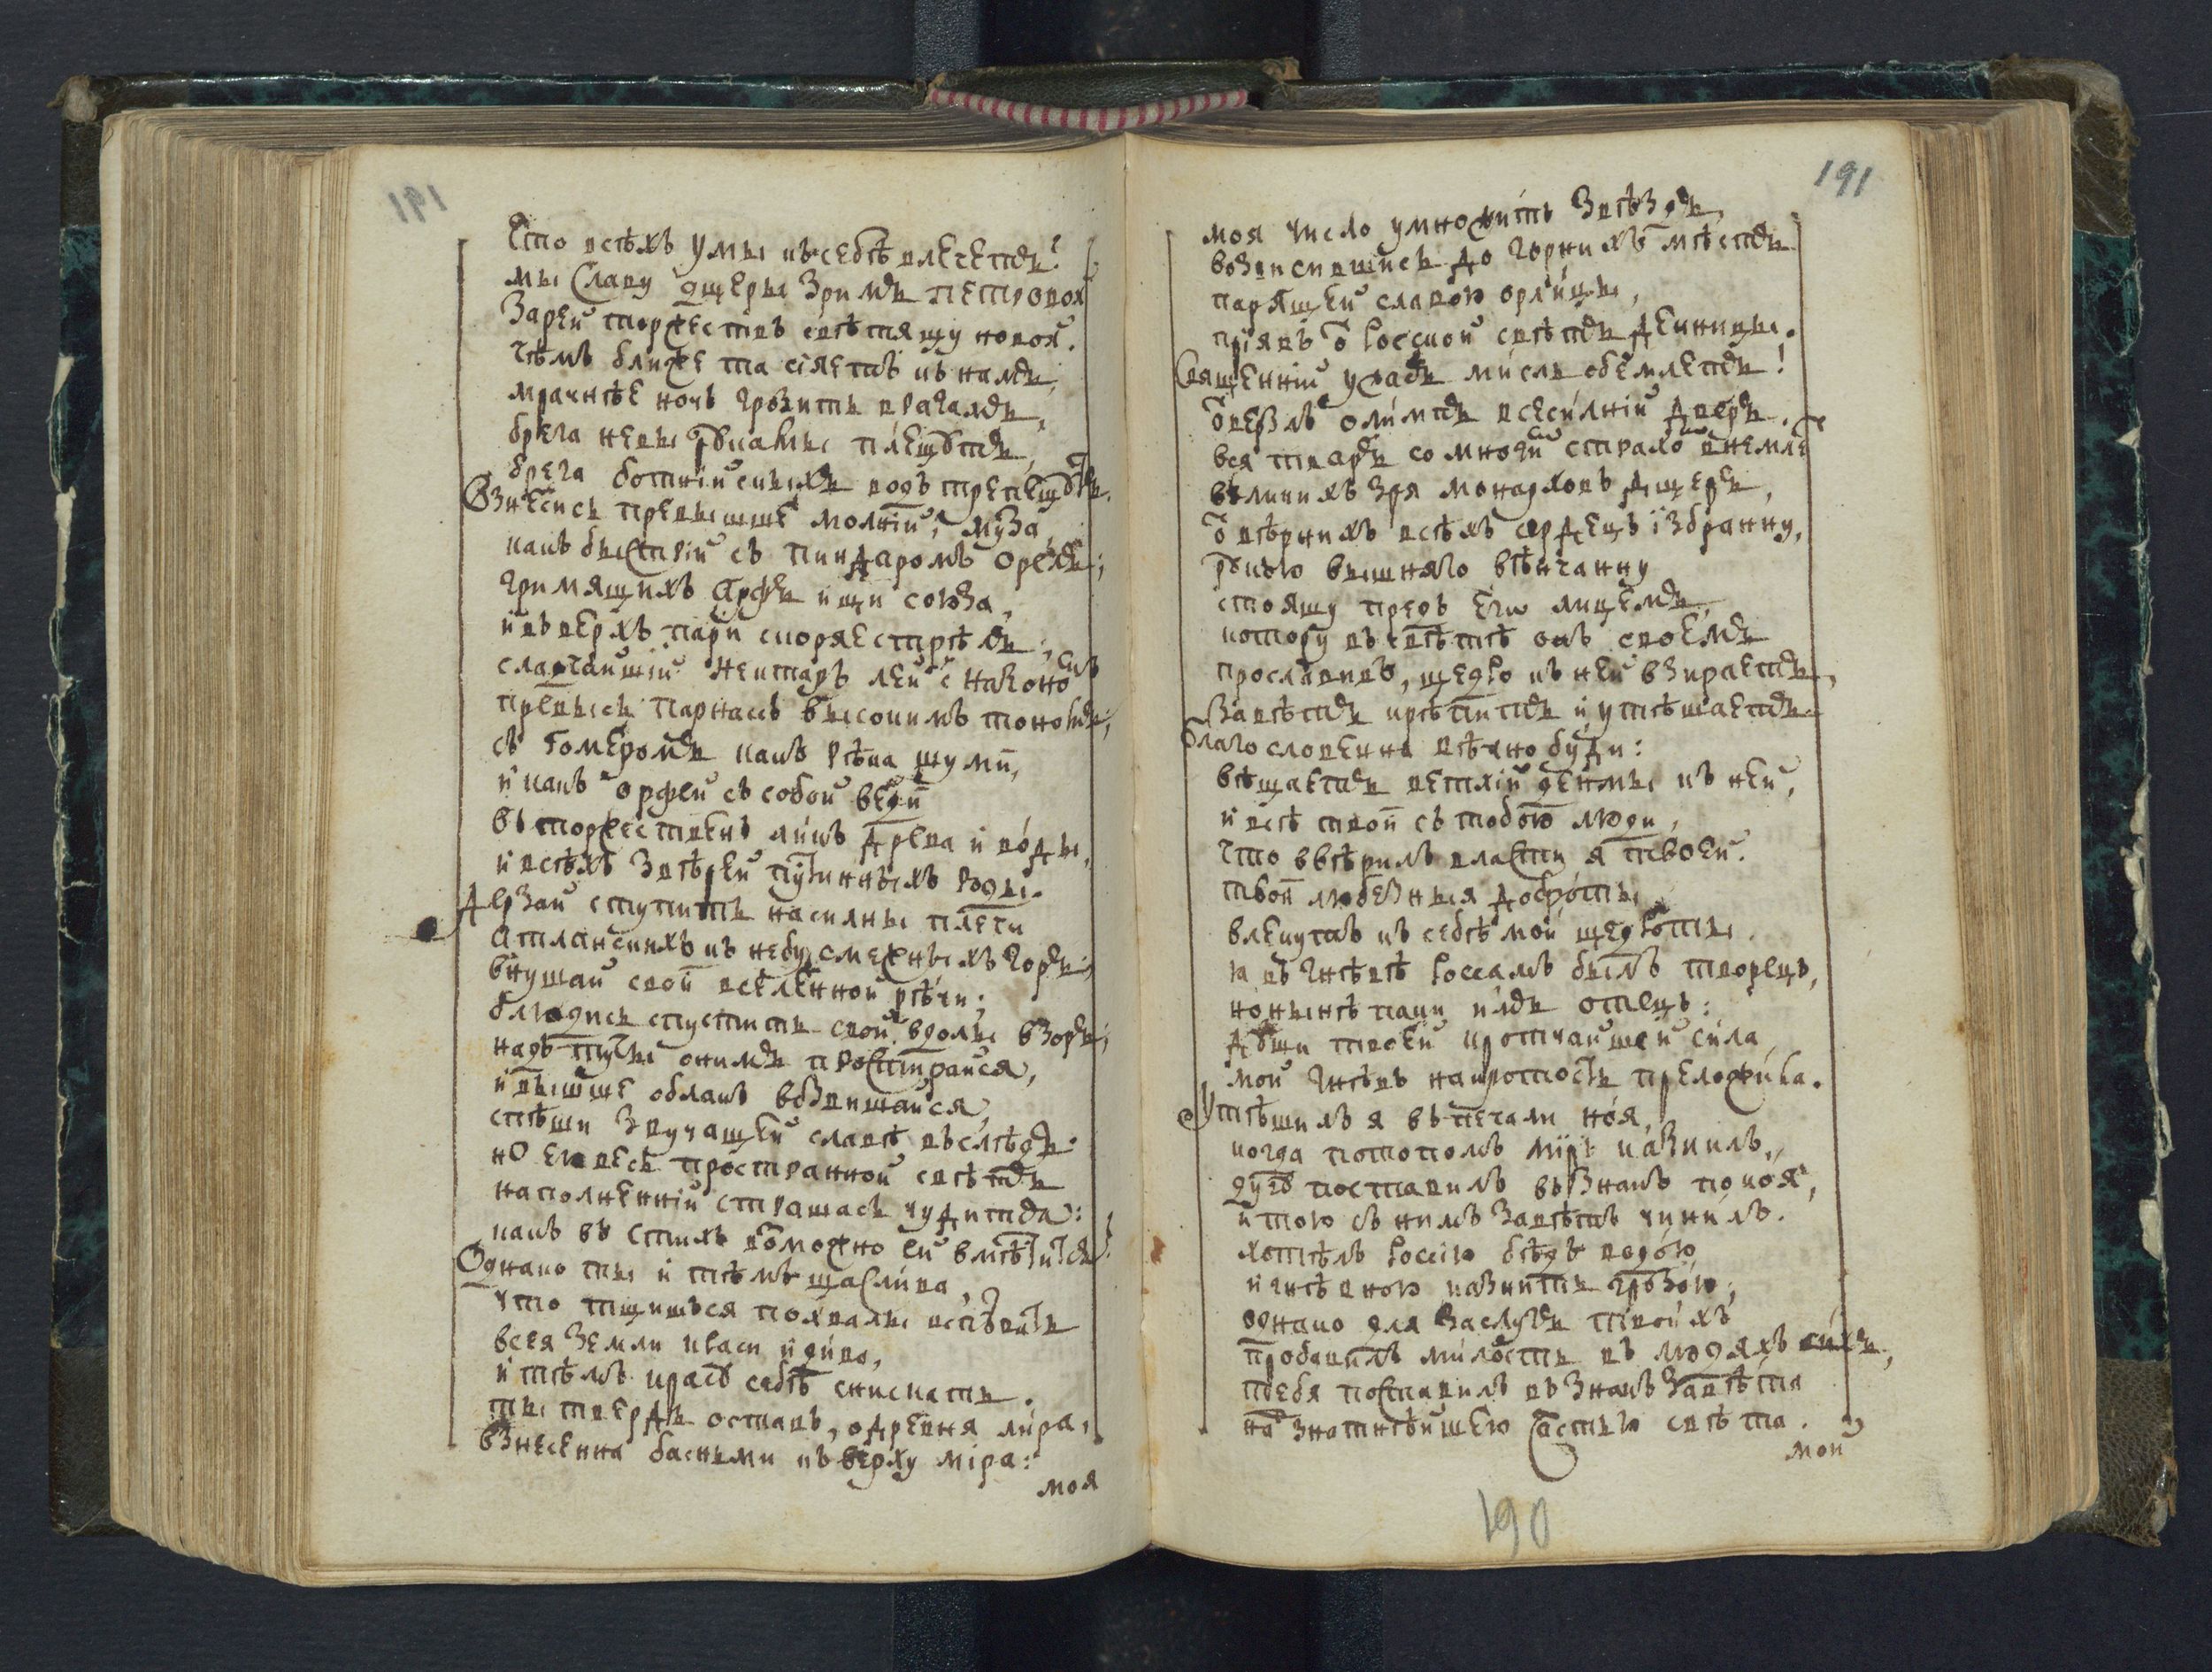 191
Что всѣхъ умы къ себѣ влечетъ?
мы Славу дщеры зримъ петровой
Зарей торжествъ свѣтящу новой.
Чѣмъ ближе та сіяетъ къ намъ,
мрачнѣе ночь грозитъ врагамъ,
брега невы рꙋками плещꙋтъ,
брега ботнійскихъ водъ трепещꙋтъ.
Взнесись превышше молній, муза,
какъ быстрій съ пиндаромъ орелъ;
гримящихъ арфъ ищи союза,
и въ верхъ пари скоряе стрѣлъ;
сладчайшій нектаръ лей с назономъ
превысь парнасъ высокимъ тономъ;
съ гомеромъ какъ рѣка шуми,
и какъ орфей съ собой веди
въ торжественъ ликъ древа и воды,
и всѣхъ звѣрей пустинныхъ роды.
Дерзай ступить на силны плечи
Атлантскихъ къ небу смежныхъ горъ,
внушай свои вселенной рѣчи;
блюдись спустить свой вдолы взоръ;
надъ тучы онимъ простирайся,
и вышше облакъ возвишайся,
спѣши звучащей славѣ въслѣдъ.
но ею весь пространной свѣтъ
наполненній страшась чудится:
какъ въ стихъ возможно ей вмѣстится?
Однако ты и тѣмъ щаслива,
что тщишься похвалы воспѣвать
всея земли красы и дива,
и тѣмъ красꙋ себѣ сниската.
ты твердь оставь, о древня лира,
взнесенна басными къ верху міра:
моя
191
моя число умножитъ звѣздъ,
возвисившись до горнихъ мѣстъ
парящей славою орлицы,
пріявъ ѿ россиой свѣтъ денницы.
Священній ужасъ мисль обемлетъ!
ѿверзъ олимпъ всесилній дверь.
вся тварь со многим страхом внемлет
великихъ зря монарховъ дщерь,
ѿ вѣрнихъ всѣхъ сердецъ ізбранну,
рꙋкою вышняго вѣнчанну
стоящу предъ его лицемъ,
котору въ свѣтѣ онъ своемъ
прославивъ, щедро къ ней взираетъ,
завѣтъ крѣпитъ и утѣшаетъ.
Благословенна вѣчно буди:
вѣщаетъ ветхій денмы къ ней,
и всѣ твои съ тобою люди,
что ввѣрилъ власти я твоей.
твои любезныя доброты
влекутъ къ себѣ мои щедроты.
я въ гнѣвѣ россамъ былъ творецъ,
но нынѣ паки имъ отецъ:
дꙋши твоей кротчайшей сила
мой гнѣвъ на кротость преложила.
Утѣшилъ я въ печали ноя,
когда потопомъ міръ казнилъ,
дугꙋ поставилъ въ знакъ покоя,
и тою съ нимъ завѣтъ чинилъ.
хотѣлъ россію бѣдъ водою
и гнѣвною казнить грозою;
однако для заслугъ твоихъ
пробавилъ милость въ людяхъ сихъ,
тебя поставилъ въ знакъ завѣта
надъ знатнѣйшею частью свѣта.
мой
190